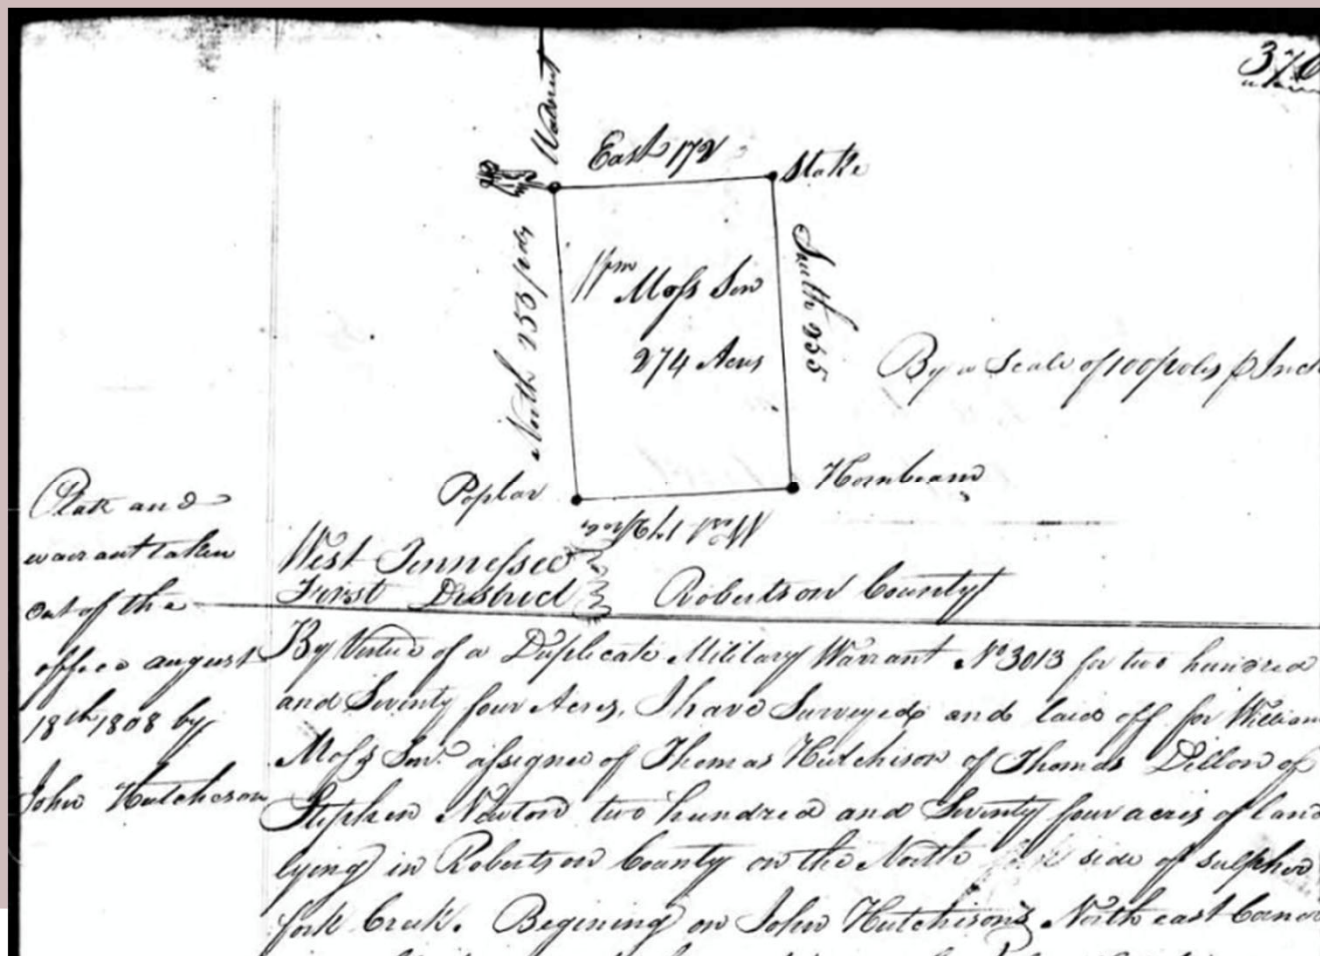 376
Walnut
East 172
Stake
North 255 pos
Wm Moss Sen
274 Acres
South 255
By a Scale of 100 poles p Inch
Poplar
Hornbeam
West 172 Pos
West Tennessee
First District
Robertson County
Platt and
warrant taken
out of the
office august
18th 1808 by
John Hutcheson
By Virtue of a Duplicate Military Warrant No 3013 for two hundred
and Seventy four Acres, I have Surveyed and laid off for William
Moss Senr. assignee of Thomas Hutchison of Thomas Dillon of
Stephen Newton two hundred and Seventy four acres of land
lying in Robertson County on the North side of Sulpher
fork Creek. Begining on John Hutchison's North east Corner